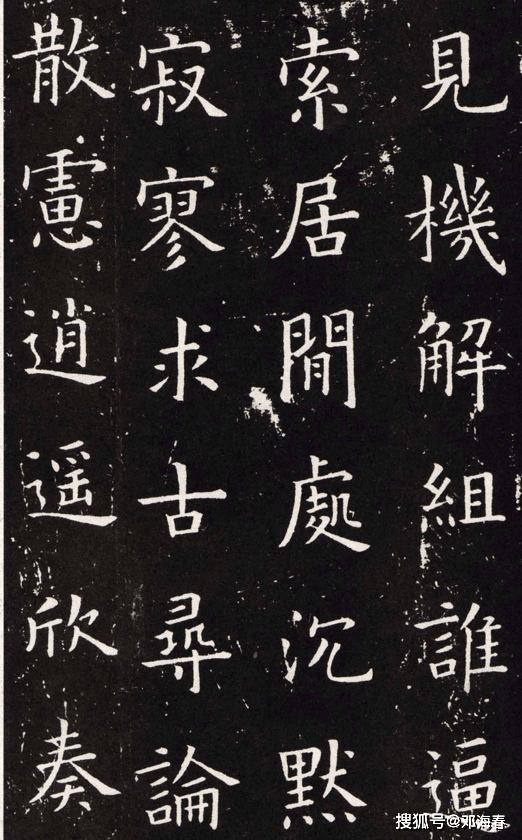 見機解組誰逼
索居閒處沉默
寂寥求古尋論
散慮逍遥欣奏
搜狐号@邓海春